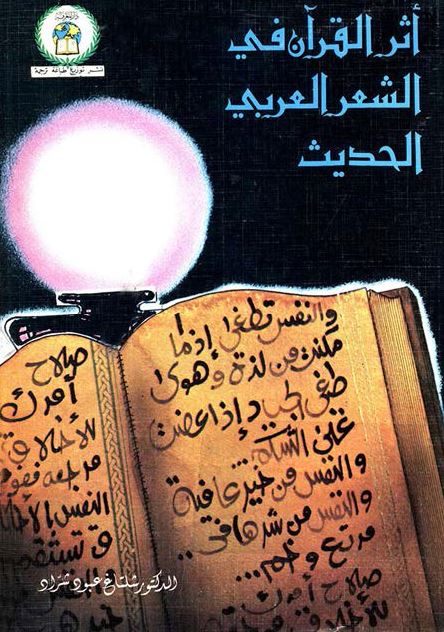 دار المعرفة
نشر توزيع طباعة ترجمة
أثر القرآن في
الشعر العربي
الحديث
والنفس تطغى إذا ما
مكنت من لذة وهوى
طغى الجياد إذا عضت
على الشكم...
والنفس من خير عافية
والنفس من شرها في..
مرتع وخم...
صلاح أمرك
للأخلاق
صلاح
أمرك
للأخلاق
مرجعه فقوم
النفس
تستقم
الدكتور شلتاغ عبود شراد